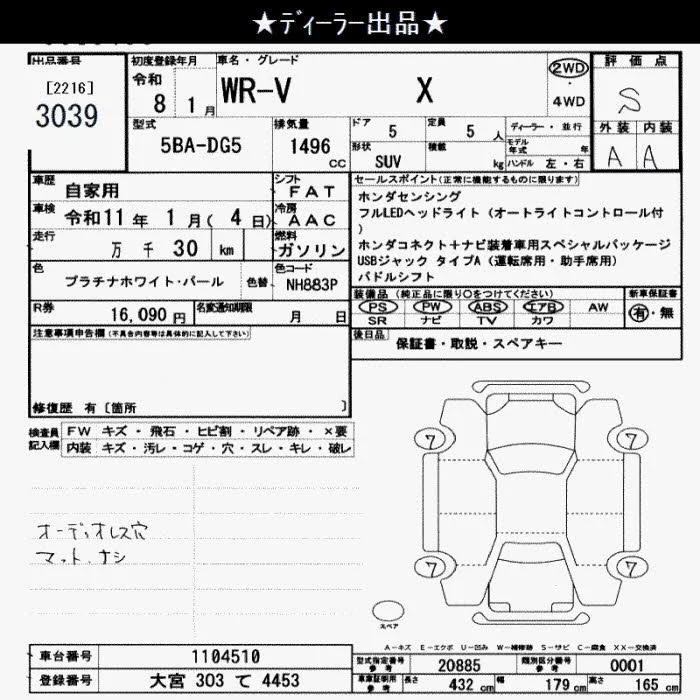 ★ディーラー出品★
出品番号
[2216]
3039
初度登録年月
令和
8 1 月
車名・グレード
WR-V X
2WD
・
4WD
評価点
S
外装 内装
A A
型式
5BA-DG5
排気量
1496
CC
ドア 5
定員 5 人
形状 SUV
積載 kg
ディーラー・並行
モデル年式 年
ハンドル 左・右
車歴 自家用
シフト FAT
車検 令和11年 1月( 4日)
冷房 AAC
走行 万 千 30 km
燃料 ガソリン
色 プラチナホワイト・パール
色替
色コード NH883P
R券 16,090 円
名変通知期限 月 日
セールスポイント(正常に機能するものに限ります)
ホンダセンシング
フルLEDヘッドライト(オートライトコントロール付
)
ホンダコネクト+ナビ装着車用スペシャルパッケージ
USBジャック タイプA(運転席用・助手席用)
パドルシフト
装備品(純正品に限り○をつけてください)
PS PW ABS エアB AW
SR ナビ TV カワ
新車保証書
有・無
後日品 保証書・取説・スペアキー
注意事項申告欄(不具合内容等は具体的に記入して下さい)
修復歴 有〔箇所 〕
検査員記入欄
FW キズ・飛石・ヒビ割・リペア跡・×要
内装 キズ・汚レ・コゲ・穴・スレ・キレ・破レ
オーディオレス穴
マット、ナシ
7 7
7 7
スペア
A-キズ E-エクボ U-凹み W-補修跡 S-サビ C-腐食 XX-交換済
車台番号 1104510
登録番号 大宮 303 て 4453
型式指定番号 参考 20885
類別区分番号 参考 0001
車庫証明用 参考 長さ 432 cm 幅 179 cm 高さ 165 cm